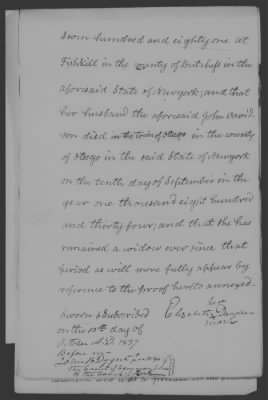 seven hundred and eighty one at
Fishkill in the county of Dutchess in the
aforesaid State of Newyork; and that
her husband the aforesaid John David
son died in the town of Otsego in the county
of Otsego in the said State of Newyork
on the tenth day of September in the
year one thousand eight hundred
and thirty four; and that she has
remained a widow ever since that
period as will more fully appear by
reference to the proof hereto annexed.
Sworn & Subscribed
her
Elisabeth X Davidson
mark
on the 13th day of
October A.D. 1837
Before me